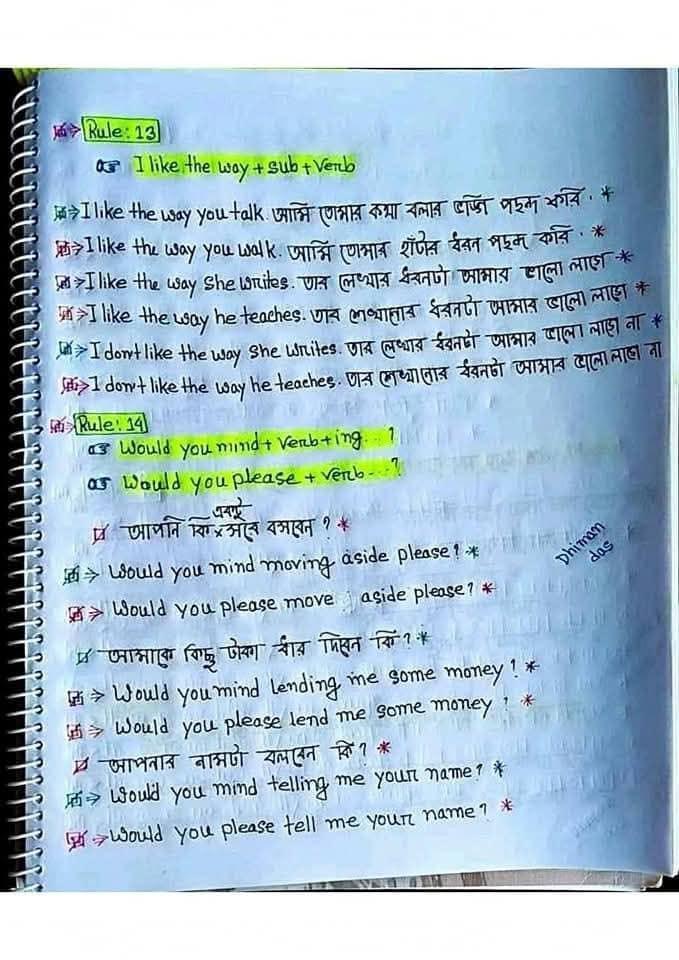 Rule: 13
I like the way + sub + verb
I like the way you talk. আমি তোমার কথা বলার ভঙ্গি পছন্দ করি. *
I like the way you walk. আমি তোমার হাঁটার ধরন পছন্দ করি. *
I like the way she writes. তার লেখার ধরনটা আমার ভালো লাগে *
I like the way he teaches. তার শেখানোর ধরনটা আমার ভালো লাগে *
I don't like the way she writes. তার লেখার ধরনটা আমার ভালো লাগে না *
I don't like the way he teaches. তার শেখানোর ধরনটা আমার ভালো লাগে না
Rule: 14
Would you mind + verb + ing...?
Would you please + verb...?
আপনি কি একটু সরে বসবেন? *
Would you mind moving aside please? *
Would you please move aside please? *
Dhiman das
আমাকে কিছু টাকা ধার দিবেন কি? *
Would you mind lending me some money? *
Would you please lend me some money? *
আপনার নামটা বলবেন কি? *
Would you mind telling me your name? *
Would you please tell me your name? *